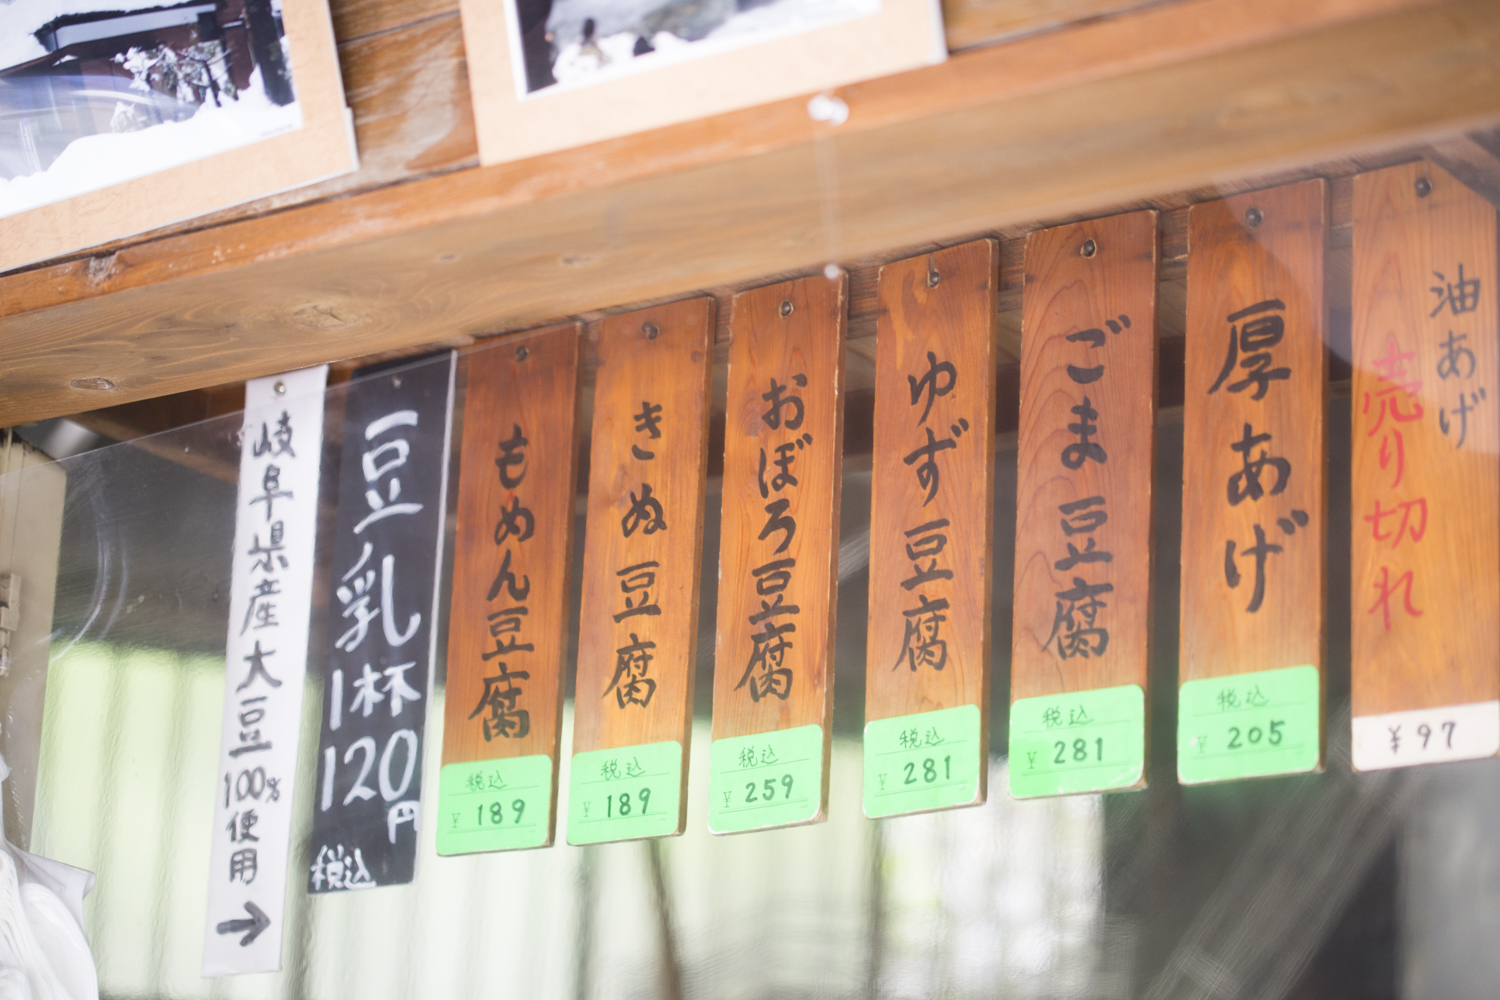 岐阜県産大豆100%使用→
豆乳1杯120円
税込
もめん豆腐
税込
¥189
きぬ豆腐
税込
¥189
おぼろ豆腐
税込
¥259
ゆず豆腐
税込
¥281
ごま豆腐
税込
¥281
厚あげ
税込
¥205
油あげ
売り切れ
¥97